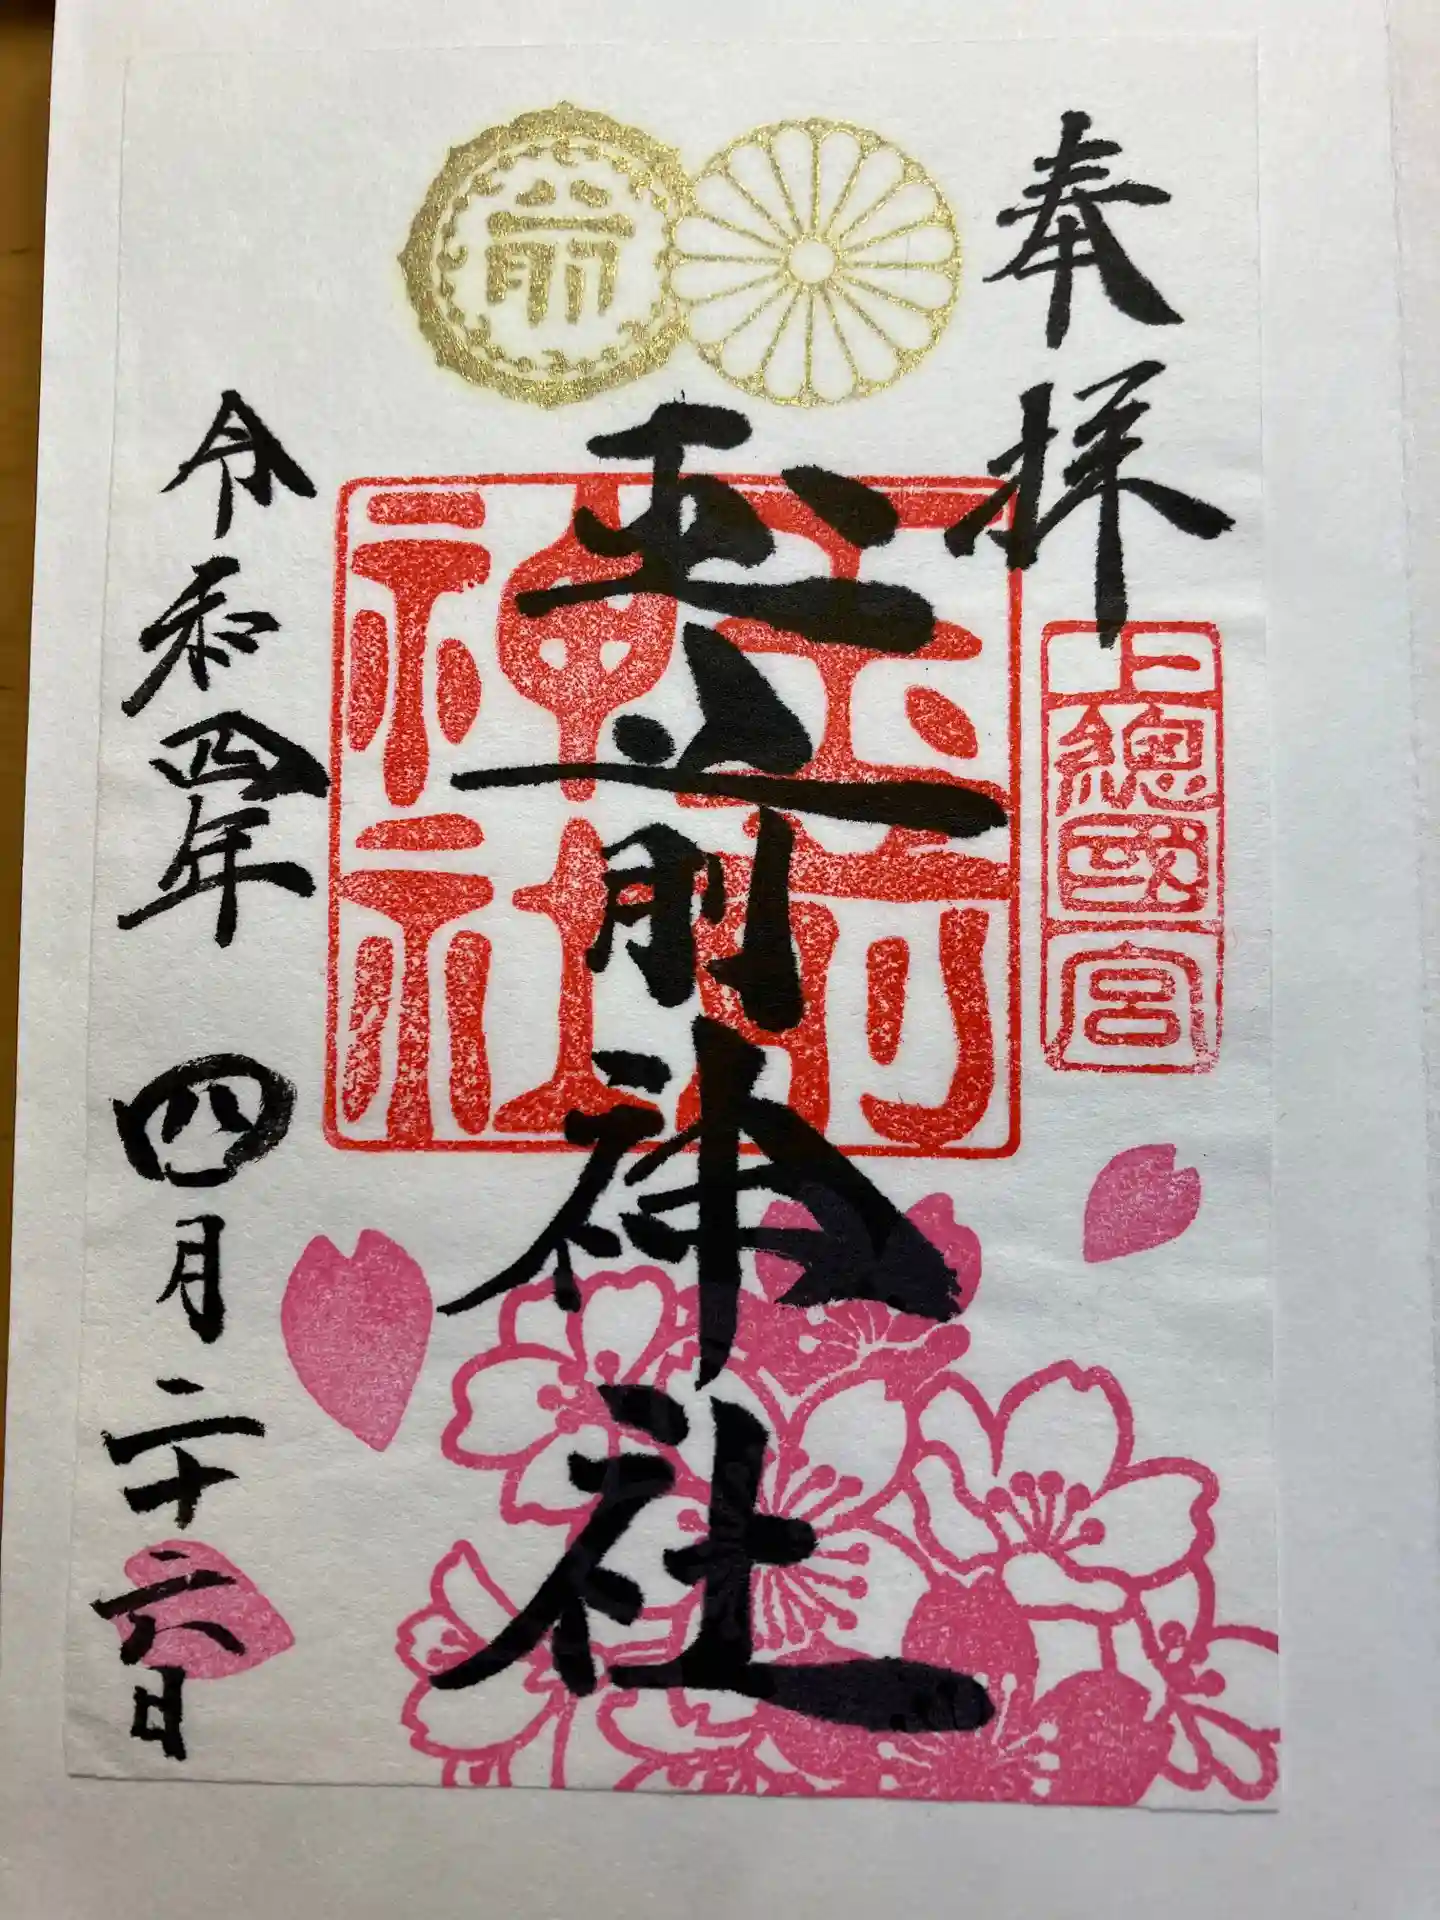 奉拝
上總國一宮
玉前神社
玉前神社
令和四年 四月二十六日